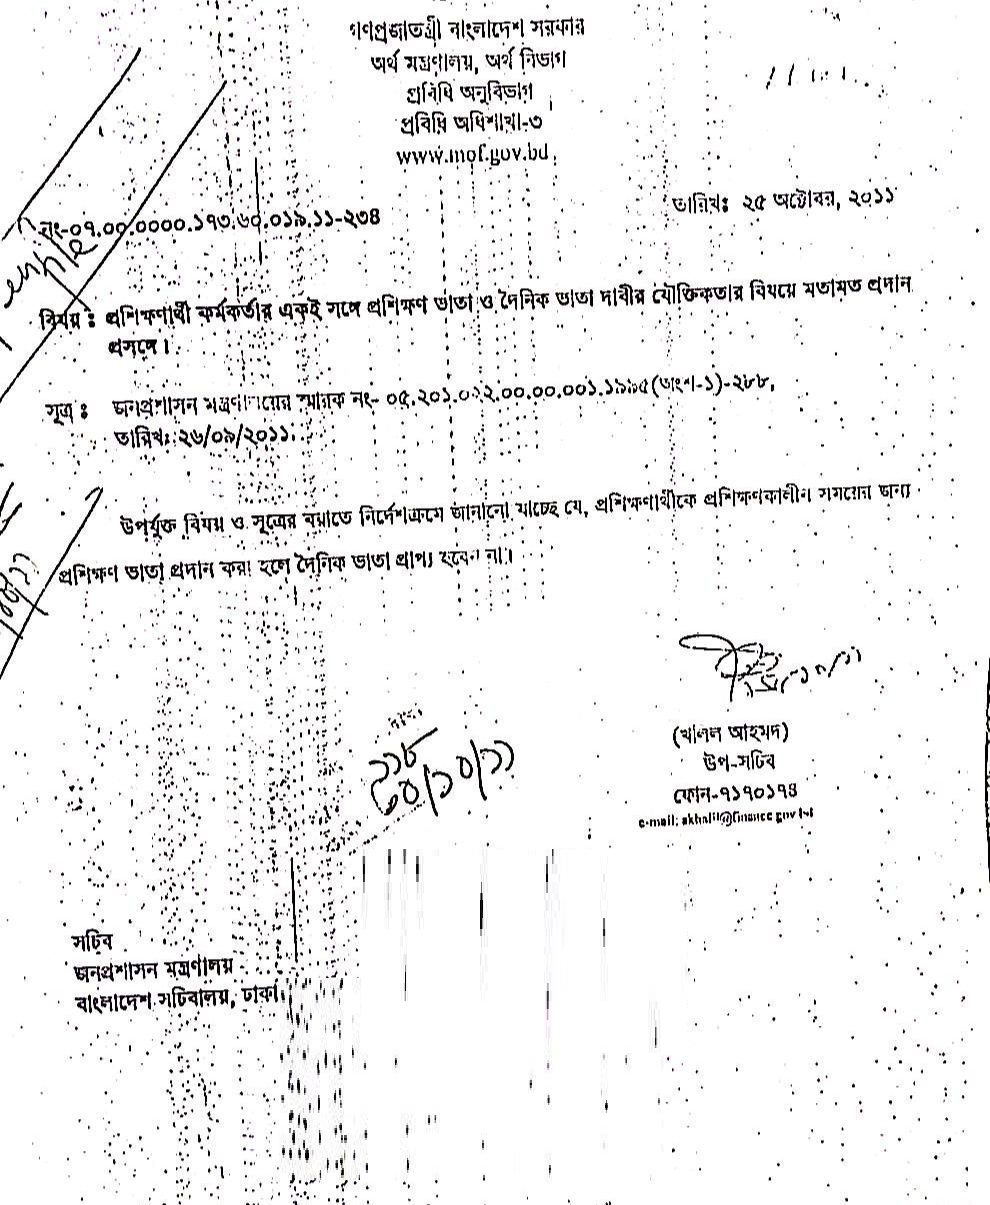 গণপ্রজাতন্ত্রী বাংলাদেশ সরকার
অর্থ মন্ত্রণালয়, অর্থ বিভাগ
প্রবিধি অনুবিভাগ
প্রবিধি অধিশাখা-৩
www.mof.gov.bd
নং-০৭.০০.০০০০.১৭৩.৬০.০১৯.১১-২৩৪
তারিখঃ ২৫ অক্টোবর, ২০১১
বিষয় : প্রশিক্ষণার্থী কর্মকর্তার একই সঙ্গে প্রশিক্ষণ ভাতা ও দৈনিক ভাতা দাবীর যৌক্তিকতার বিষয়ে মতামত প্রদান
প্রসঙ্গে।
সূত্র : জনপ্রশাসন মন্ত্রণালয়ের স্মারক নং- ০৫.২০১.০২২.০০.০০.০০১.১৯৯৫(অংশ-১)-২৮৮,
তারিখঃ ২৬/০৯/২০১১.
উপর্যুক্ত বিষয় ও সূত্রের বরাতে নির্দেশক্রমে জানানো যাচ্ছে যে, প্রশিক্ষণার্থীকে প্রশিক্ষণকালীন সময়ের জন্য
প্রশিক্ষণ ভাতা প্রদান করা হলে দৈনিক ভাতা প্রাপ্য হবেন না।
(খলিল আহমদ)
উপ-সচিব
ফোন-৭১৭০১৭৪
e-mail: akhalil@finance.gov.bd
সচিব
জনপ্রশাসন মন্ত্রণালয়
বাংলাদেশ সচিবালয়, ঢাকা